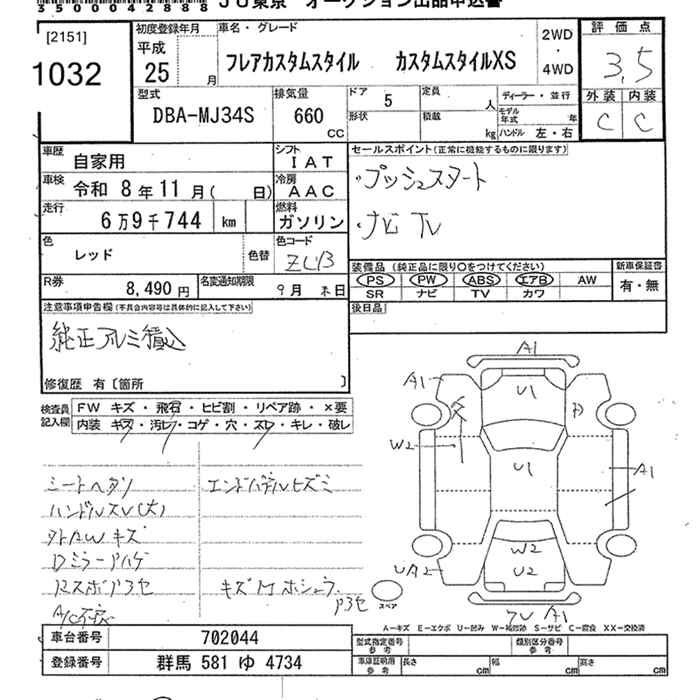 35000042888
JU東京 オークション出品申込書
[2151]
1032
初度登録年月
平成
25
月
車名・グレード
フレアカスタムスタイル カスタムスタイルXS
2WD
・
4WD
評価点
3.5
外装 内装
C C
型式
DBA-MJ34S
排気量
660
CC
ドア
5
形状
定員
人
積載
kg
ディーラー・並行
モデル年式
年
ハンドル 左・右
車歴
自家用
シフト
IAT
車検
令和 8年 11月( 日)
冷房
AAC
走行
6万9千744 km
燃料
ガソリン
色
レッド
色替
色コード
R券
8,490円
名変通知期限
9月 末日
セールスポイント(正常に機能するものに限ります)
・プッシュスタート
・ナビ TV
装備品(純正品に限り○をつけてください)
PS PW ABS エアB AW
SR ナビ TV カワ
新車保証書
有・無
後日品
注意事項申告欄(不具合内容等は具体的に記入して下さい)
純正アルミ積込
修復歴 有〔箇所 〕
検査員
記入欄
FW キズ・飛石・ヒビ割・リペア跡・×要
内装 キズ・汚レ・コゲ・穴・スレ・キレ・破レ
シートヘタリ
ハンドルスレ(大)
外AWキズ
Dミラーアハゲ
エンドパネルヒズミ
A1
A1
U1
W2
U1
A1
W2
U2
UA2
A1
スペア
A-キズ E-エクボ U-凹み W-補修跡 S-サビ C-腐食 XX-交換済
車台番号
702044
登録番号
群馬 581 ゆ 4734
型式指定番号
参考
類別区分番号
参考
車庫証明用
参考
長さ cm
幅 cm
高さ cm